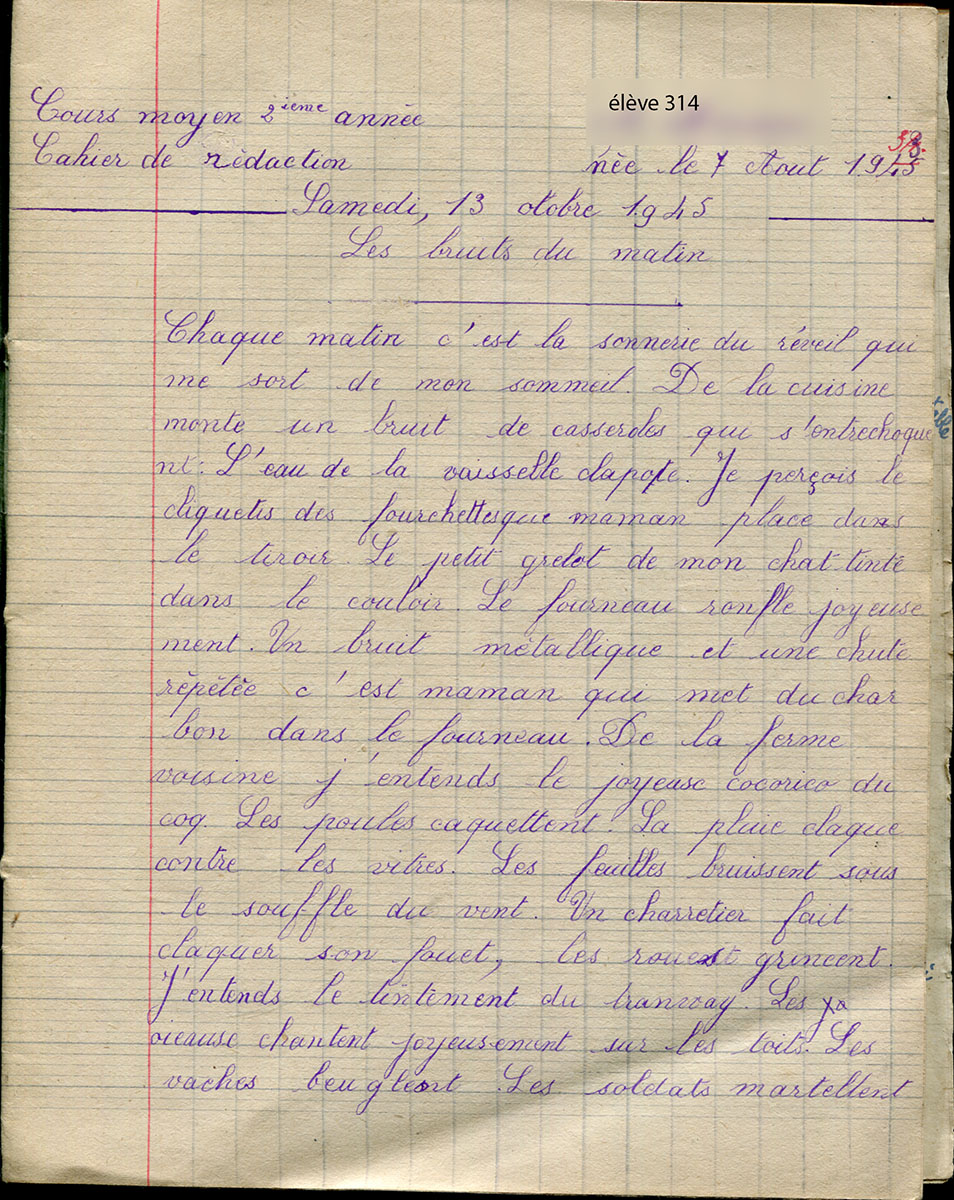 élève 314
Cours moyen 2ième année
Cahier de rédaction née le 7 Aout 1945
Samedi, 13 otobre 1945
Les bruits du matin
Chaque matin c'est la sonnerie du réveil qui
me sort de mon sommeil. De la cuisine
monte un bruit de casseroles qui s'entrechoque
nt. L'eau de la vaisselle clapote. Je perçois le
cliquetis des fourchettes que maman place dans
le tiroir. Le petit grelot de mon chat tinte
dans le couloir. Le fourneau ronfle joyeuse
ment. Un bruit métallique et une chute
répétée c'est maman qui met du char
bon dans le fourneau. De la ferme
voisine j'entends le joyeuse cocorico du
coq. Les poules caquettent. La pluie claque
contre les vitres. Les feuilles bruissent sous
le souffle du vent. Un charretier fait
claquer son fouet, les roues grincent.
J'entends le tintement du tranway. Les
oieause chantent joyeusement sur les toits. Les
vaches beuglent. Les soldats martellent